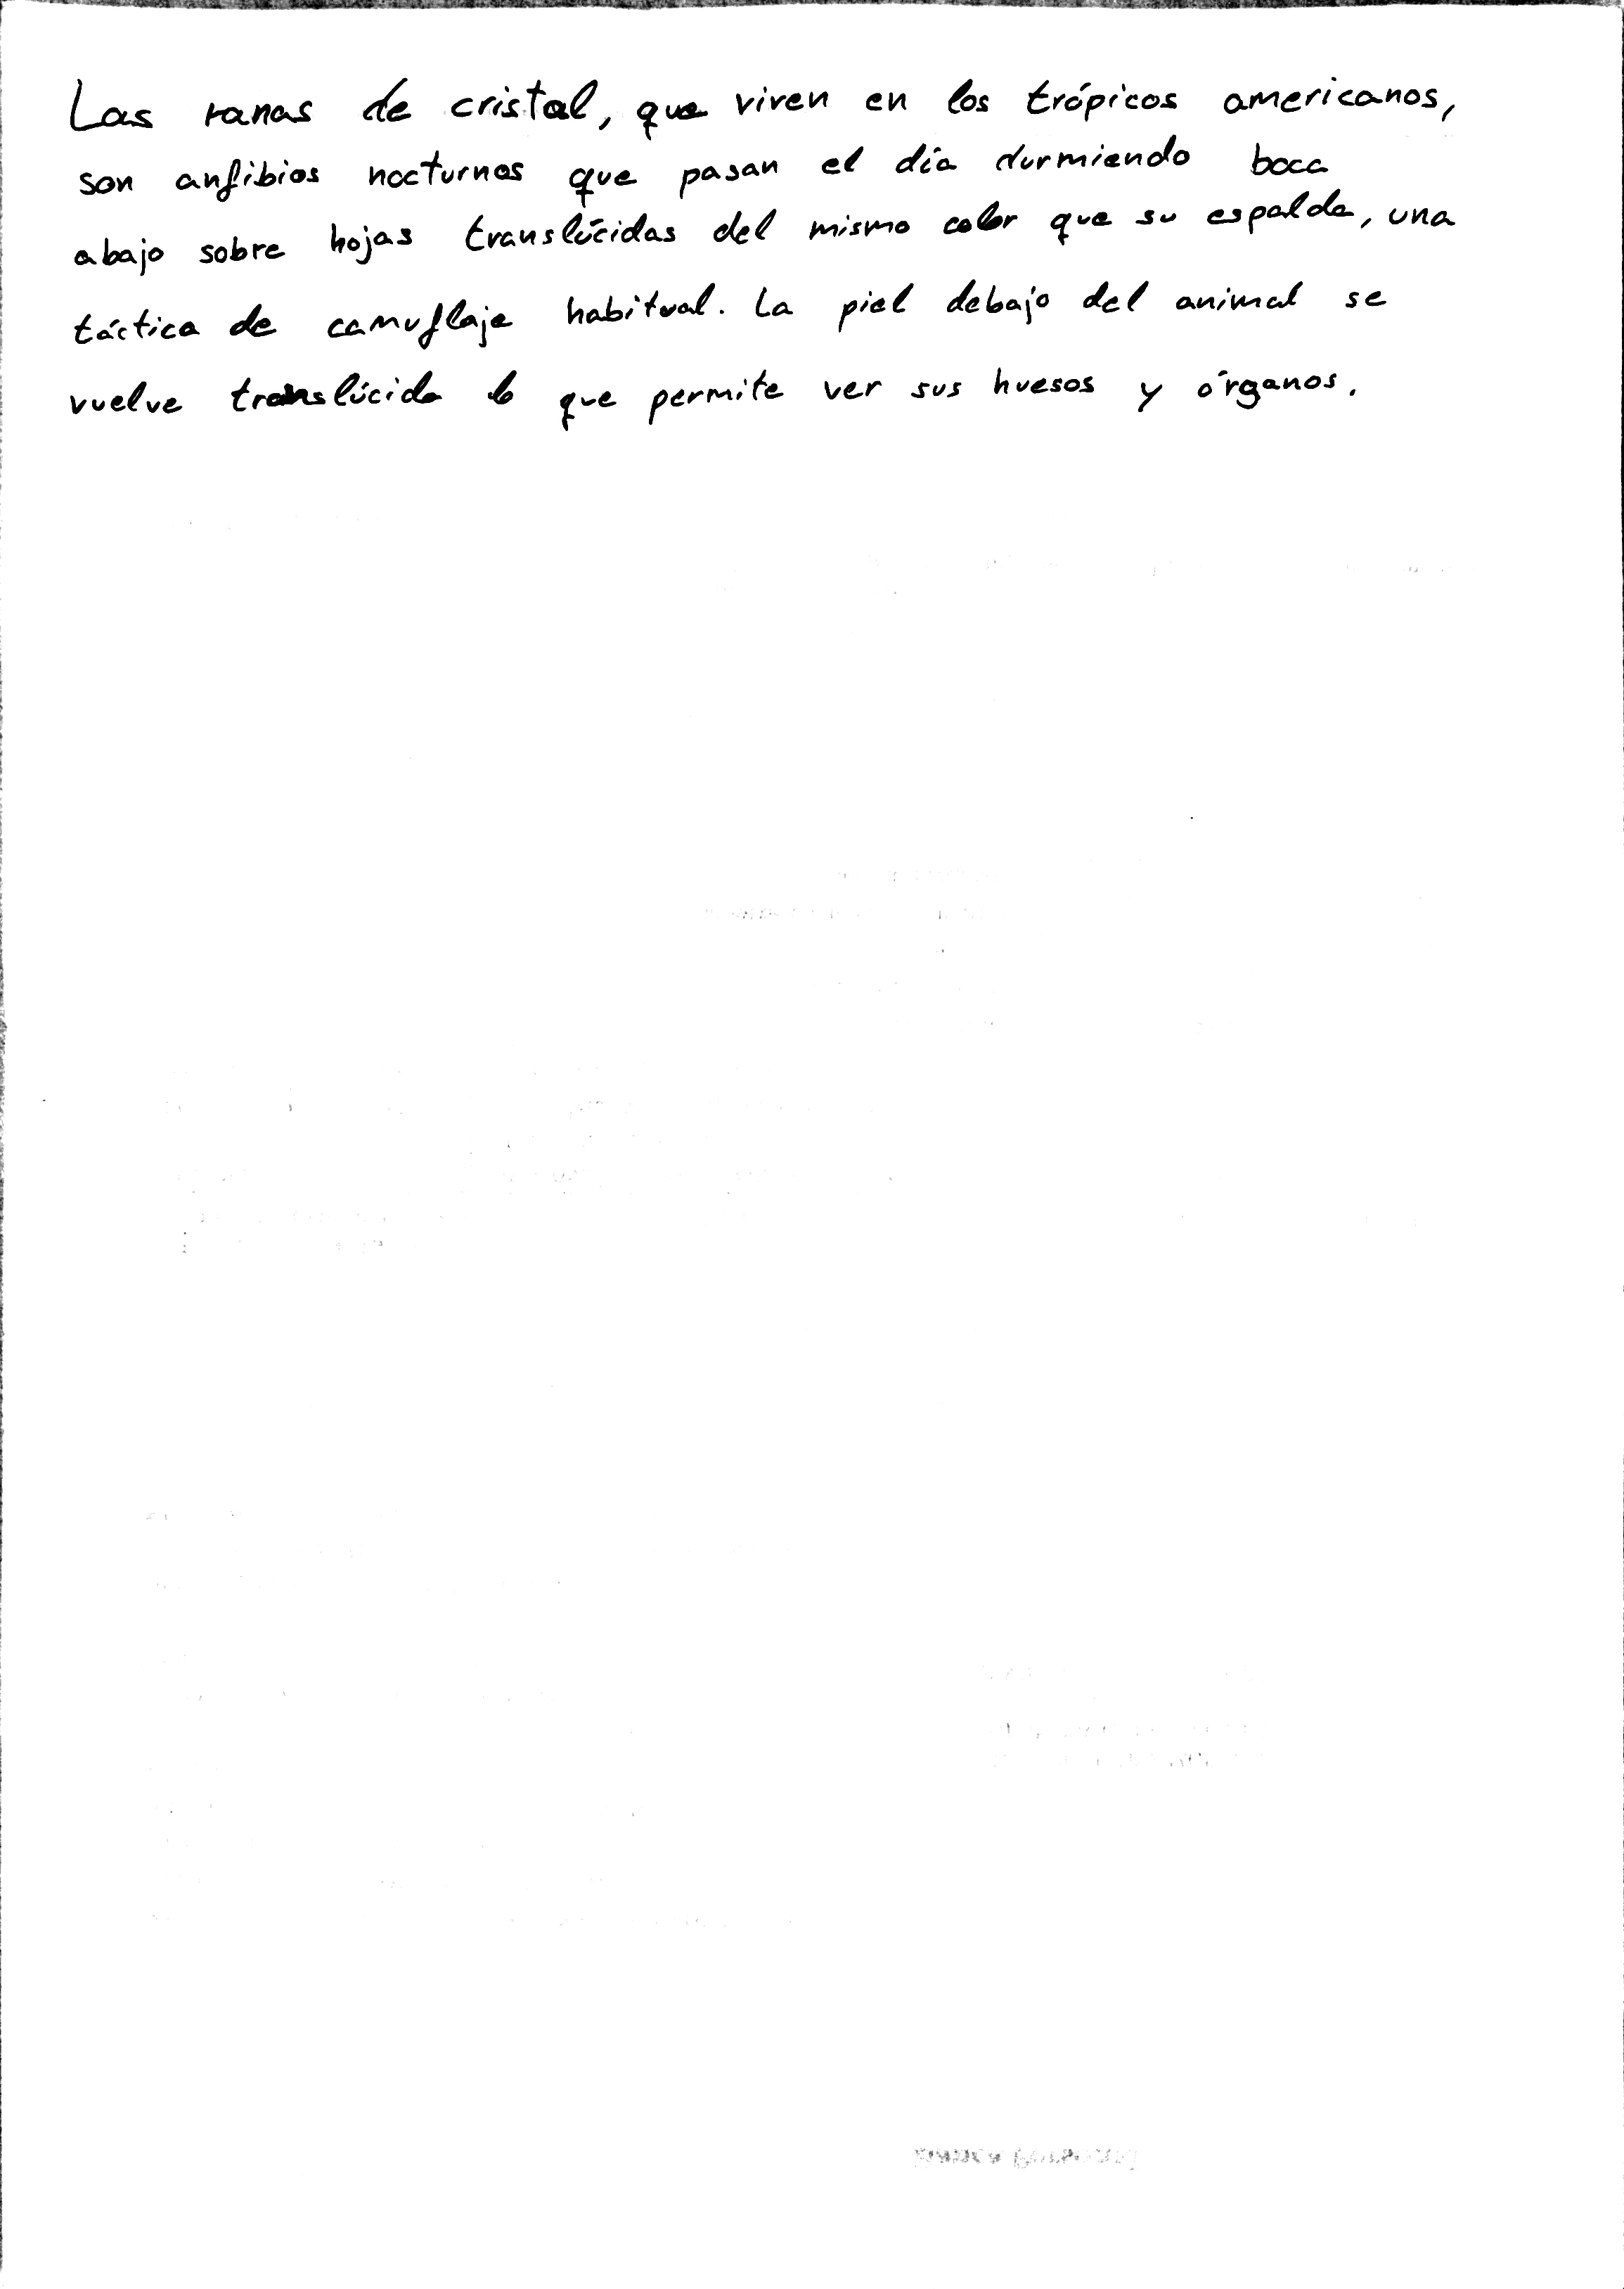 Las ranas de cristal, que viven en los trópicos americanos,
son anfibios nocturnos que pasan el día durmiendo boca
abajo sobre hojas translúcidas del mismo color que su espalda, una
táctica de camuflaje habitual. La piel debajo del animal se
vuelve translúcida lo que permite ver sus huesos y órganos.